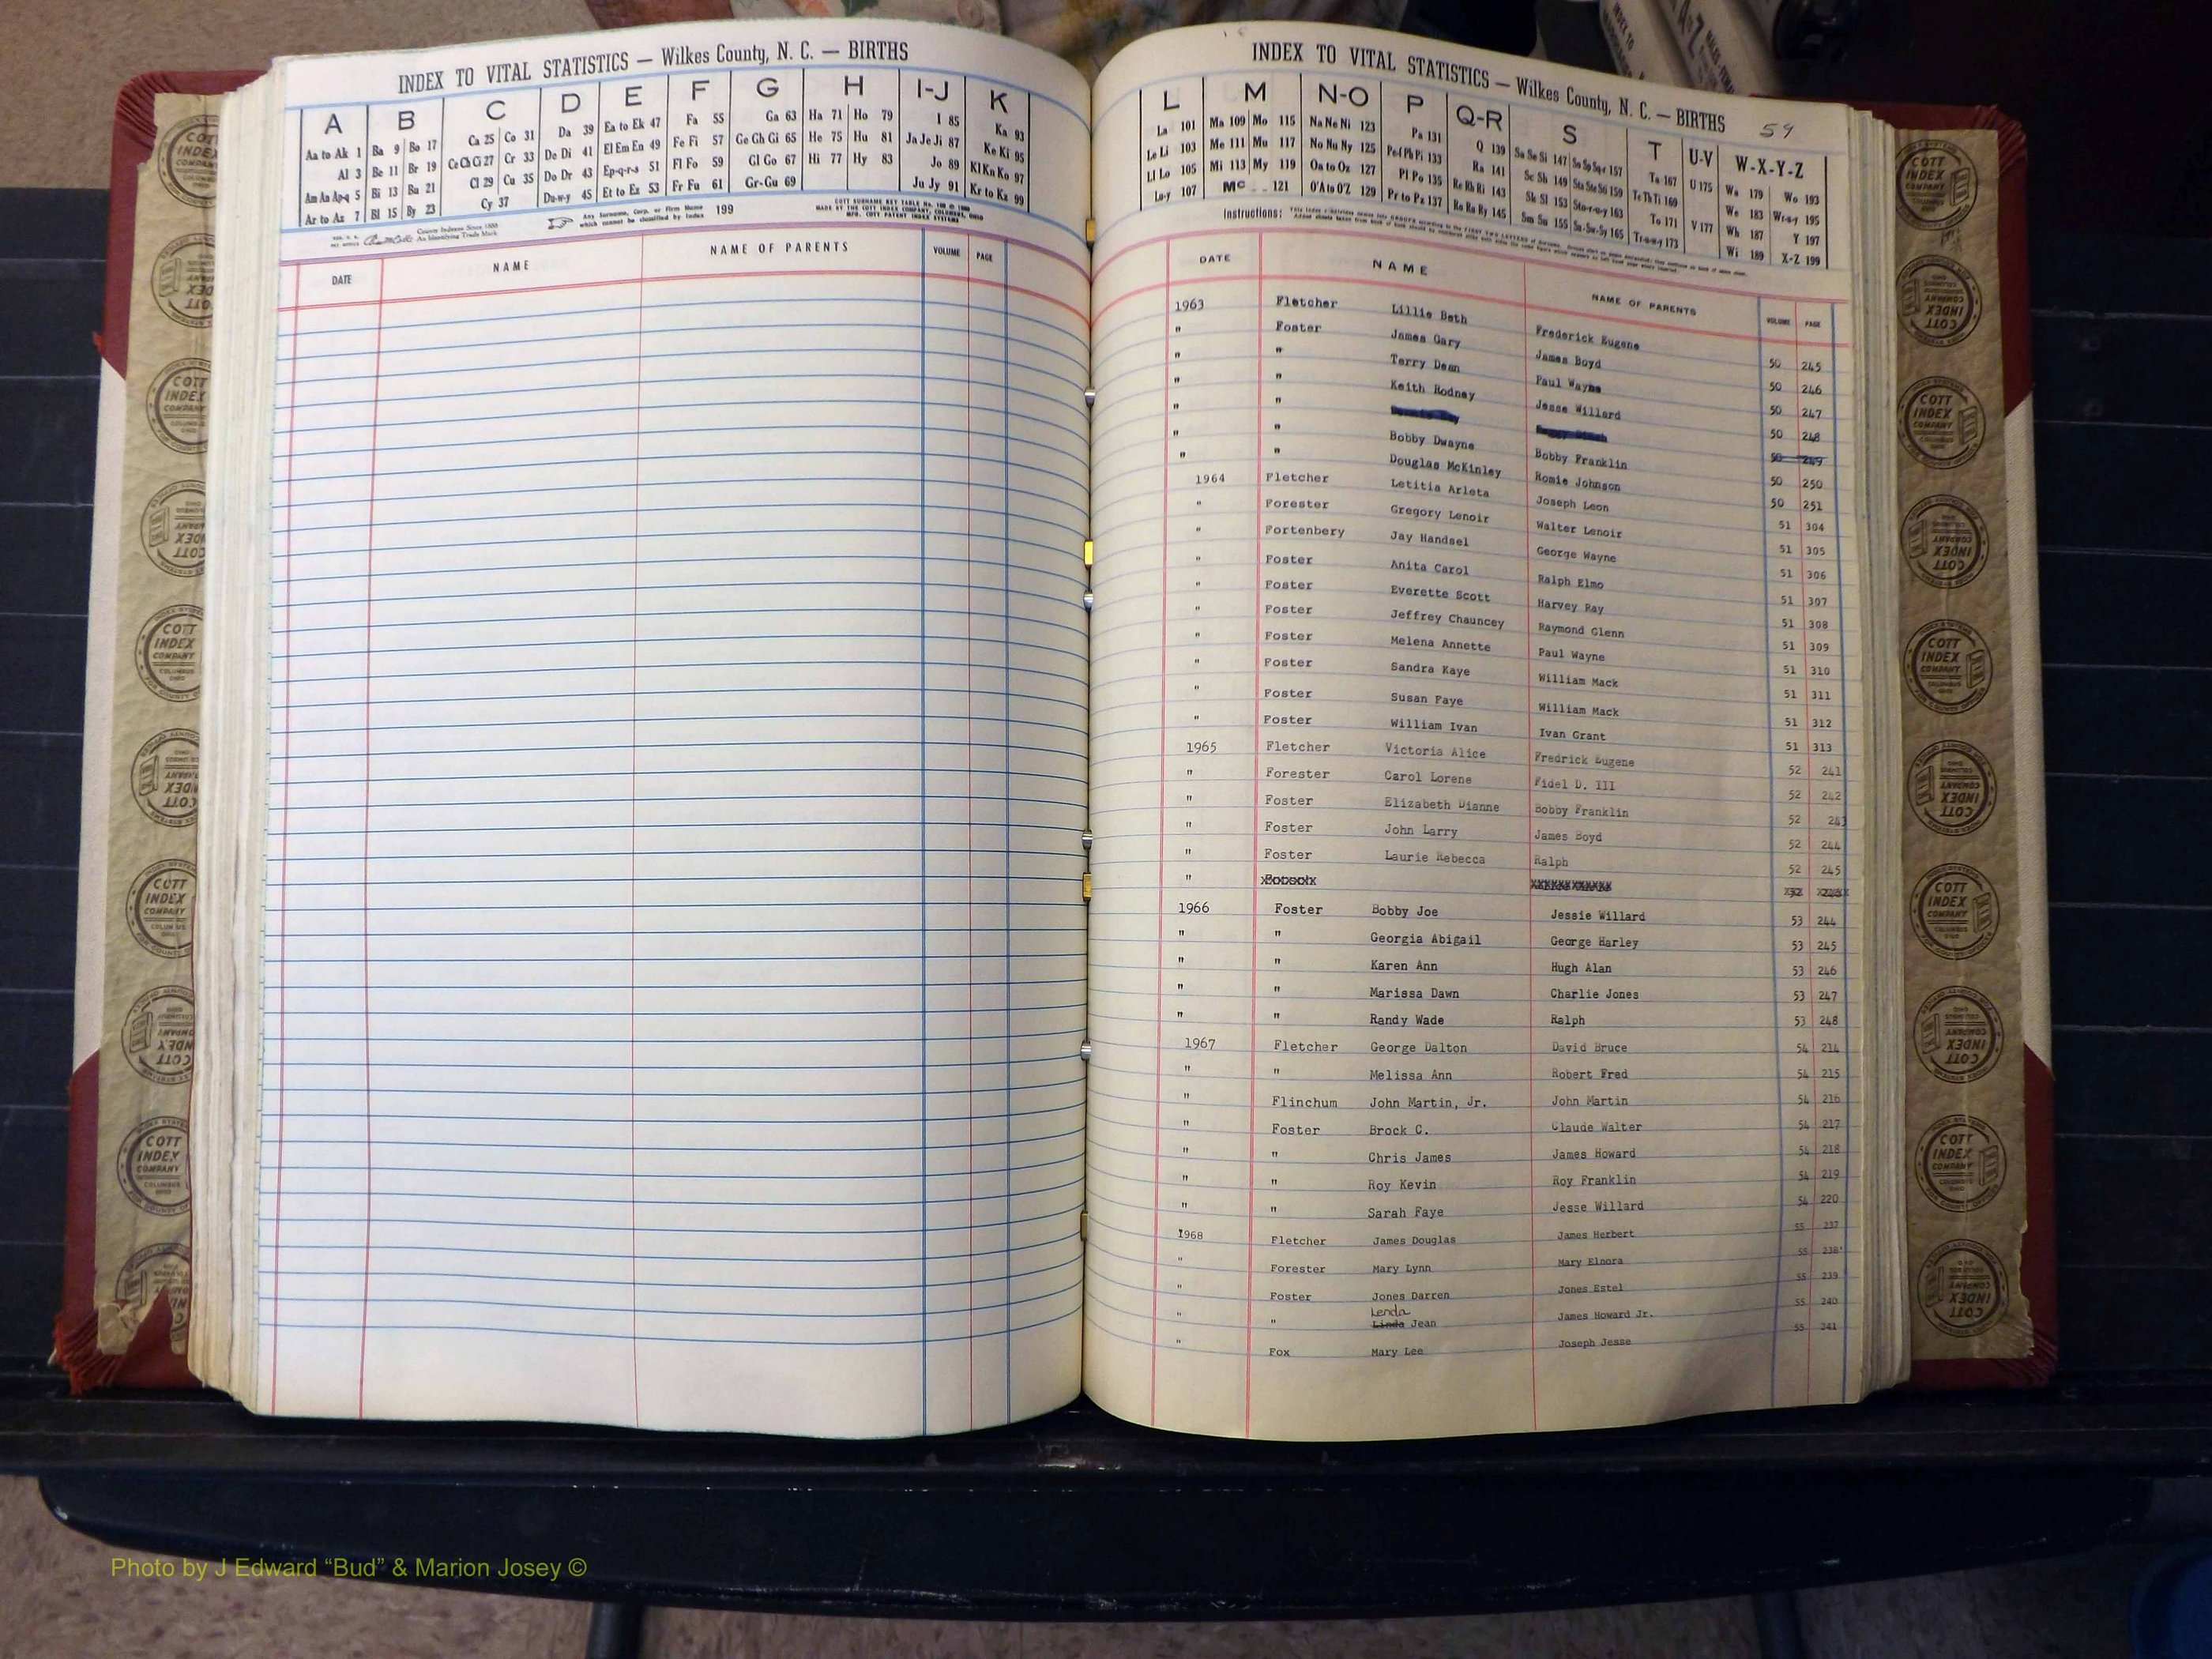 INDEX TO VITAL STATISTICS — Wilkes County, N. C. — BIRTHS
A B C D E F G H I-J K
Aa to Ak 1 Ba 9 Bo 17 Ca 25 Co 31 Da 39 Ea to Ek 47 Fa 55 Ga 63 Ha 71 Ho 79 I 85 Ka 93
Al 3 Be 11 Br 19 Ce Ch Ci 27 Cr 33 De Di 41 El Em En 49 Fe Fi 57 Ge Gh Gi 65 He 75 Hu 81 Ja Je Ji 87 Ke Ki 95
Am An Ap-q 5 Bi 13 Bu 21 Cl 29 Cu 35 Do Dr 43 Ep-q-r-s 51 Fl Fo 59 Gl Go 67 Hi 77 Hy 83 Jo 89 Kl Kn Ko 97
Ar to Az 7 Bl 15 By 23 Cy 37 Du-w-y 45 Et to Ez 53 Fr Fu 61 Gr-Gu 69 Ju Jy 91 Kr to Kz 99
County Indexes Since 1888
An Identifying Trade Mark
Any Surname, Corp. or Firm Name which cannot be classified by index 199
COTT SURNAME KEY TABLE
MADE BY THE COTT INDEX COMPANY, COLUMBUS, OHIO
MFD. COTT PATENT INDEX SYSTEMS
DATE NAME NAME OF PARENTS VOLUME PAGE
INDEX TO VITAL STATISTICS — Wilkes County, N. C. — BIRTHS 59
L M N-O P Q-R S T U-V W-X-Y-Z
La 101 Ma 109 Mo 115 Na Ne Ni 123 Pa 131 Q 139 Sa Se Si 147 So Sp Sq-r 157 Ta 167 U 175 Wa 179 Wo 193
Le Li 103 Me 111 Mu 117 No Nu Ny 125 Pe-f Ph Pi 133 Ra 141 Sc Sh 149 Sta Ste Sti 159 Te Th Ti 169 V 177 We 183 Wr-u-y 195
Ll Lo 105 Mi 113 My 119 Oa to Oz 127 Pl Po 135 Re Rh Ri 143 Sk Sl 153 Sto-r-u-y 163 To 171 Wh 187 Y 197
Lu-y 107 Mc 121 O'A to O'Z 129 Pr to Pz 137 Ro Ru Ry 145 Sm Sn 155 Su-Sw-Sy 165 Tr-u-w-y 173 Wi 189 X-Z 199
Instructions:
DATE NAME NAME OF PARENTS VOLUME PAGE
1963 Fletcher Lillie Beth Frederick Eugene 50 245
" Foster James Gary James Boyd 50 246
" " Terry Dean Paul Wayne 50 247
" " Keith Rodney Jesse Willard 50 248
" " 50 249
" " Bobby Dwayne Bobby Franklin 50 250
" " Douglas McKinley Romie Johnson 50 251
1964 Fletcher Letitia Arleta Joseph Leon 51 304
" Forester Gregory Lenoir Walter Lenoir 51 305
" Fortenbery Jay Handsel George Wayne 51 306
" Foster Anita Carol Ralph Elmo 51 307
" Foster Everette Scott Harvey Ray 51 308
" Foster Jeffrey Chauncey Raymond Glenn 51 309
" Foster Melena Annette Paul Wayne 51 310
" Foster Sandra Kaye William Mack 51 311
" Foster Susan Faye William Mack 51 312
" Foster William Ivan Ivan Grant 51 313
1965 Fletcher Victoria Alice Fredrick Eugene 52 241
" Forester Carol Lorene Fidel D. III 52 242
" Foster Elizabeth Dianne Bobby Franklin 52 243
" Foster John Larry James Boyd 52 244
" Foster Laurie Rebecca Ralph 52 245
"
1966 Foster Bobby Joe Jessie Willard 53 244
" " Georgia Abigail George Harley 53 245
" " Karen Ann Hugh Alan 53 246
" " Marissa Dawn Charlie Jones 53 247
" " Randy Wade Ralph 53 248
1967 Fletcher George Dalton David Bruce 54 214
" " Melissa Ann Robert Fred 54 215
" Flinchum John Martin, Jr. John Martin 54 216
" Foster Brock C. Claude Walter 54 217
" " Chris James James Howard 54 218
" " Roy Kevin Roy Franklin 54 219
" " Sarah Faye Jesse Willard 54 220
1968 Fletcher James Douglas James Herbert 55 237
" Forester Mary Lynn Mary Elnora 55 238
" Foster Jones Darren Jones Estel 55 239
Lenda
" " Linda Jean James Howard Jr. 55 240
" Fox Mary Lee Joseph Jesse 55 241
COTT INDEX COMPANY COLUMBUS OHIO
Photo by J Edward “Bud” & Marion Josey ©